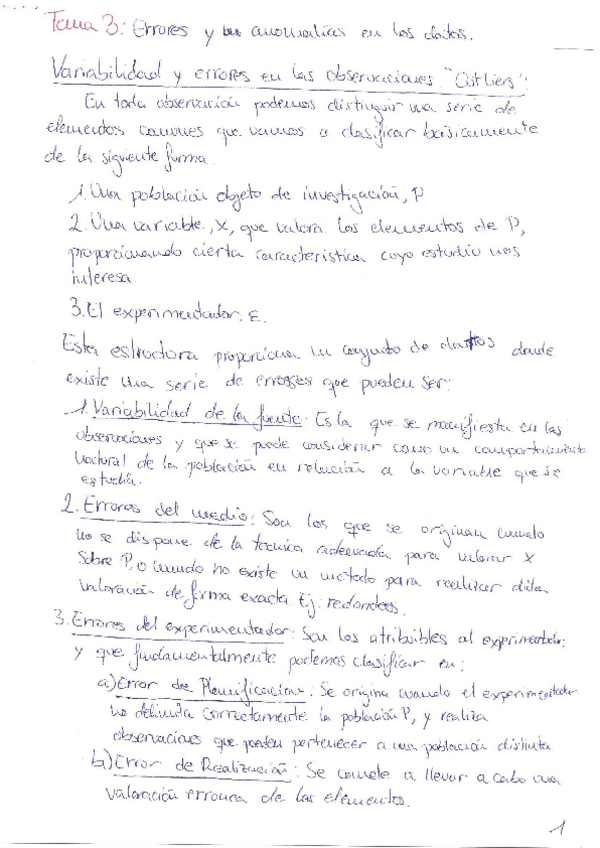 Tema 3: Errores y anomalías en los datos.
Variabilidad y errores en las observaciones. "Outliers":
En toda observación podemos distinguir una serie de
elementos comunes que vamos a clasificar básicamente
de la siguiente forma.
1. Una población objeto de investigación, P
2. Una variable, X, que valora los elementos de P,
proporcionando cierta característica cuyo estudio nos
interesa.
3. El experimentador: E.
Esta estructura proporciona un conjunto de datos donde
existe una serie de errores que pueden ser:
1. Variabilidad de la fuente: Es la que se manifiesta en las
observaciones y que se puede considerar como un comportamiento
natural de la población en relación a la variable que se
estudia.
2. Errores del medio: Son los que se originan cuando
no se dispone de la técnica adecuada para valorar X
sobre P, o cuando no existe un método para realizar dicha
valoración de forma exacta Ej: redondeos.
3. Errores del experimentador: Son los atribuibles al experimentador;
y que fundamentalmente podemos clasificar en:
a) Error de Planificación: Se origina cuando el experimentador
no delimita correctamente la población P, y realiza
observaciones que pueden pertenecer a una población distinta
b) Error de Realización: Se comete a llevar a cabo una
valoración erronea de los elementos.
1